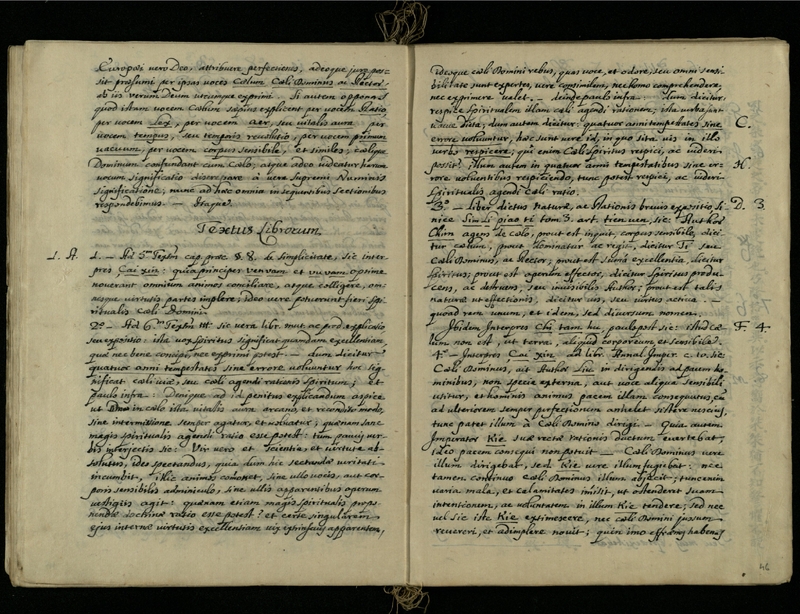 Europæi vero Deo, attribuere perfectiones, adeoque jure pos-
sit præsumi per ipsas voces Cælum Cæli Dominus ac Rector
ab iis verum Deum utcumque exprimi. Si autem opponas
quod istam vocem Cælum sæpius explicent per vocem Ratio
per vocem Lex, per vocem aer, seu vitalis aura per
vocem tempus, seu temporis revolutio, per vocem primum
vacuum, per vocem corpus sensibile, et similes; cælique
Dominum confundant cum Cælo, atque adeo indicetur harum
vocum significatio discrepare à vera supremi Numinis
significatione, nunc ad hæc omnia in sequentibus Sectionibus
respondebimus. — Itaque.
Textus Librorum
1. A. 1. — Ad 5.m Textum cap. præc. §. 8. de simplicitate, sic inter-
pres Cai xin: quia principes ven vam et vu vam optime
noverant omnium animos conciliare, atque colligere, om-
nesque virtutis partes implere; ideo vere potuerunt fieri spi-
ritualis cæli Domini.
2.o — Ad 6.m Textum sic vera libr. mut. ac pro explicatio
seu expositio: ista vox spiritus significat quamdam excellentiam
quæ nec bene concipi, nec exprimi potest — dum dicitur
quatuor anni tempestates sine errore volvuntur hoc sig-
nificat cæli viæ, seu cæli agendi rationis spiritum; et
paulo infra: Denique ad id penitus explicandum aspice
ut in cælo ista vitalis aura arcano, et recondito modo,
sine intermissione semper agatur, et volvatur; quænam sane
magis spiritualis agendi ratio esse potest: tum paucis ver-
bis interjectis sic: Vir vero et scientia et virtute ab-
solutus, ides spectandus, quia dum hic sectandæ veritati
incumbit, illic animos commovet, sine ullo vocis, aut cor-
poris sensibilis adminiculo, sine ullis apparentibus operum
vestigiis agit: quænam etiam magis spiritualis propa-
gandæ doctrinæ ratio esse potest? et certe singularem
ejus internæ virtutis excellentiam vix extrinsecus apparentem,
ideoque cæli Domini rebus, quas voce, et odore, seu omni sensi-
bilitate sunt expertes, vere consimilem, nec homo comprehendere,
nec exprimere valet. — deinde paulo infra — dum dicitur,
respice spiritualem illam cæli agendi rationem; ista verba jux-
ta viæ vita, dum autem dicitur quatuor anni tempestates sine C.
errore volvuntur, hoc sunt vere id, in quo sita vis in illo
verbo respicere; qui enim cæli spiritus respici, ac videri
possit? illum autem in quatuor anni tempestatibus sine er- H.
rore volventibus respiciendo, tunc potest respici, ac videri
spiritualis agendi cæli ratio.
3.o — Liber dictus Naturæ, ac Rationis brevis expositio, si- D. 3.
nice Sim Li piao ti tom. 3. art. tien ven, sic: Author
Chim agens de cælo, prout est inquit, corpus sensibile, dici-
tur cælum, prout dominatur ac regit, dicitur Ti seu
cæli Dominus, ac Rector; prout est summa excellentia, dicitur
spiritus; prout est operum effector, dicitur spiritus produ-
cens, ac destruens, seu invisibilis Author; prout est talis
naturæ ut effectionis, dicitur vis, seu virtus activa. —
quoad rem unum, et idem, sed diversum nomen.
Ibidem Interpres Chi tam hu, paulo post sic: istud cæ- F. 4.
lum non est, ut terra, aliquid corporeum et sensibile.
4.o — Interpres Cai xin ad libr. Annal. Imper. c. 10. sic
Cæli Dominus, ait Author Liu in dirigendis ad pacem ho-
minibus, non specie externa, aut voce aliqua sensibili
utitur, et hominis animus pacem illam consequutus, cum
ad ulteriorem semper perfectionem anhelet sistere nescius,
tunc patet illum à Cæli Domino dirigi. — Quia autem
Imperator Kie suæ rectæ rationis ductum evertebat,
ideo pacem consequi non potuit — Cæli Dominus vere
illum dirigebat, sed Kie vere illum fugiebat: nec
tamen continuo cæli Dominus illum abjecit; tunc enim
varia mala, et calamitates immisit, ut ostenderet suam
intentionem, ac voluntatem in illum Kie tendere; sed nec
vel sic iste Kie extimescere, nec cæli Domini jussum
revereri, et adimplere novit; quin imo effrænis habenas
46